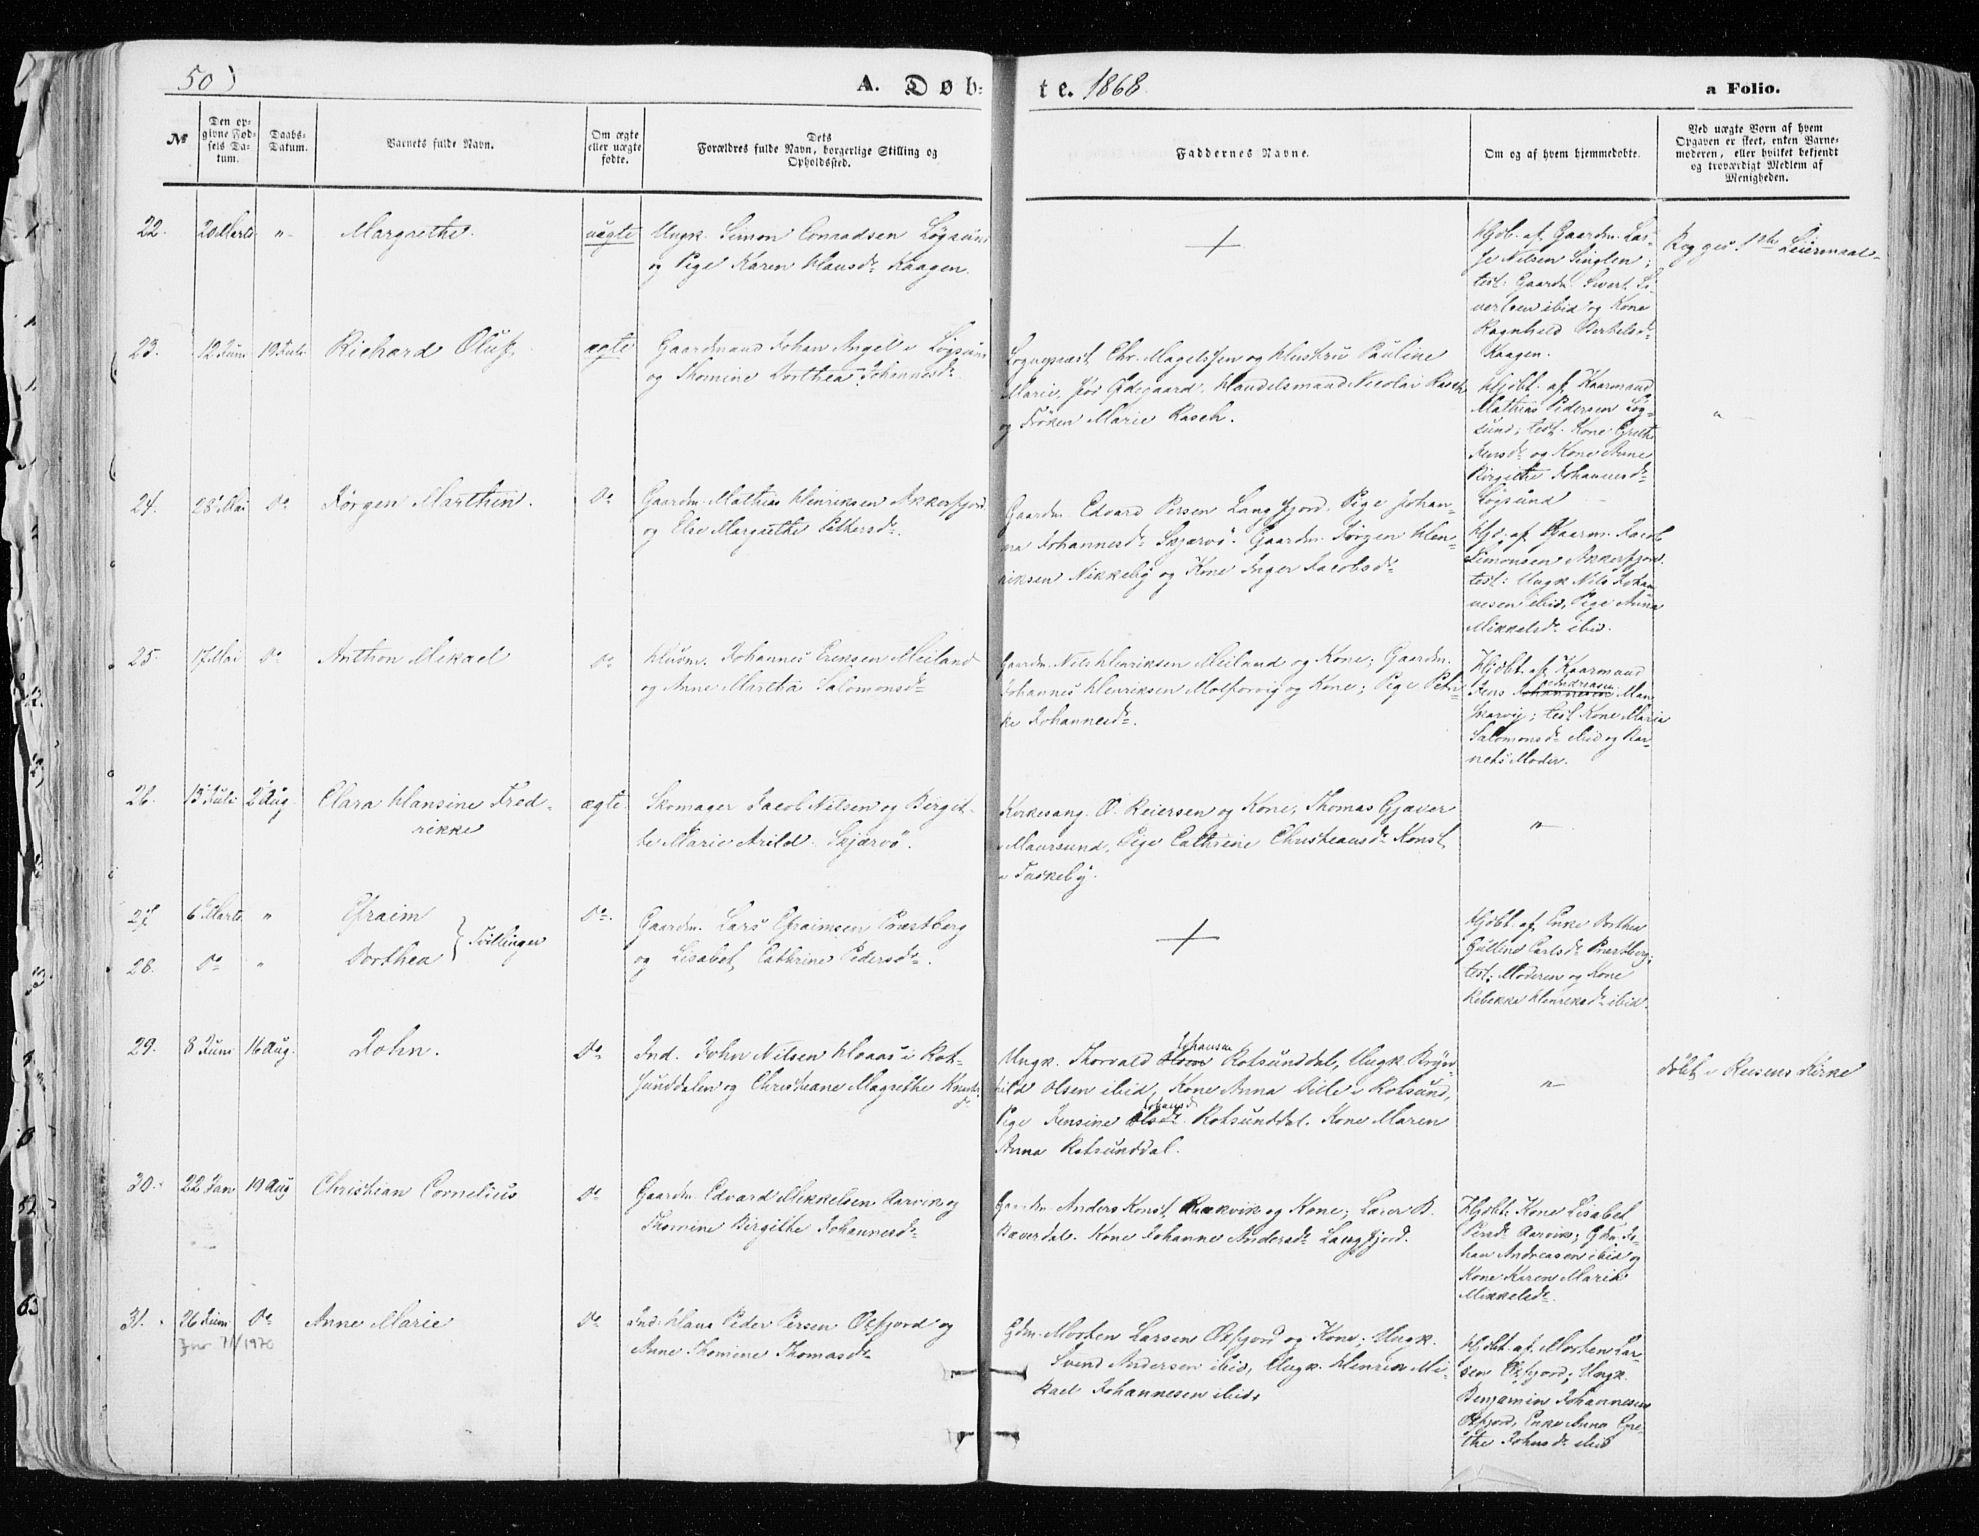 50)
A. Døb-
te. 1868
a Folio.
№
Den op-
givne Fød-
sels Da-
tum.
Daabs-
Datum.
Barnets fulde Navn.
Om ægte
eller uægte
fødte.
Dets
Forældres fulde Navn, borgerlige Stilling og
Opholdssted.
Faddernes Navne.
Om og af hvem hjemmedøbte.
Ved uægte Børn af hvem
Opgaven er skeet, enten Barne-
moderen, eller hvilket bekjendt
og troværdigt Medlem af
Menigheden.
22.
20 Marts
"
Margrethe.
uægte
Ungk. Simon Conradsen Løgsund
og Pige Karen Hansdr Kaagen.
+
Hjdb. af Gaardm. Las-
se Nilsen Singlen;
test: Gaardm. Sivert Si-
vertsen ibid og Kone
Ragnhild Berthelsdr
Kaagen.
Begges 1ste Leiermaal
23.
12 Juni
19 Juli
Richard Oluf.
ægte
Gaardmand Johan Angel i Løgsund
og Thomine Dorthea Johannesdr
Sognepræst Chr. Magelssen og Hustru Pauline
Marie, Ødegaard, Handelsmand Nicolai Rasch
og Frøken Marie Rasch.
Hjdbt. af Kaarmand
Mathias Pedersen Løg-
sund; test. Kone Grethe
Jensdr og Kone Anne
Birgithe Johannesdr
Løgsund
"
24.
28 Mai
Do
Jørgen Marthin.
Do
Gaardm. Mathias Henriksen Akkerfjord
og Else Margrethe Pethersdr.
Gaardm. Edvard Persen Langfjord. Pige Johan-
na Johannesdr Skjærvø. Gaardm. Jørgen Hen-
riksen Nikkeby og Kone Inger Jacobsdr
Hjd. af Kaarm. Jacob
Simonsen Akkerfjord.
test: Ungk Nils Johan-
nesen ibid, Pige Anna
Mikkelsdr ibid.
25.
17 Mai
Do
Anthon Mikael
Do
Husm. Johannes Eriksen Meiland
og Anne Martha Salomonsdr
Gaardm. Nils Henriksen Meiland og Kone; Gaardm.
Johannes Henriksen Molforvig og Kone; Pige Petri-
ke Johannesdr.
Hjdbt. af Kaarmand
Andreasen
Jens Johannesen Man-
skarvig; test Kone Maria
Salomonsdr ibid og Bar-
nets Moder.
26.
13 Juli
2 Aug.
Clara Hansine Fred-
rikke
ægte
Skomager Jacob Nilsen og Birgit-
te Marie Arild Skjærvø.
Kirkesang. O. Reiersen og Kone, Thomas Gjæver
i Maursund, Pige Cathrine Christiansdr Konst
i Taskeby.
"
27.
6 Marts
"
Efraim
Do
Gaardm. Lars Efraimsen Præstberg
og Lisabet Cathrine Pedersdr.
+
Hjdbt. af Enke Dorthea
Gulline Carlsdr Præstberg;
test: Moderen og Kone
Rebekka Henriksdr ibid.
28.
Do
"
Dorthea
} Tvillinger
29.
8 Juni
16 Aug.
John.
Do
Ind. John Nilsen Hoaas i Rot-
sunddalen og Christiane Magrethe Knuts-
dr
Johansen
Ungk. Thorvald Olsen Rotsunddal, Ungk Bryn-
hild Olsen ibid, Kone Anna Dille i Rotsund,
Johansdr
Pige Jensine Olsdr Rotsunddal. Kone Maren
Anna Rotsunddal.
"
Døbt i Reisens Kirke
30.
22 Jan
19 Aug
Christian Cornelius
Do
Gaardm. Edvard Mikkelsen Aarvik og
Thomine Birgithe Johannesdr
Gaardm. Anders Konst Rækvik og Kone; Lærer B.
Bæverdal. Kone Johanne Andersdr Langfjord.
Hjdbt: Kone Lisabet
Persdr Aarvik; Gdm. Jo-
han Andreasen ibid og
Kone Karen Marie
Mikkelsdr.
31.
26 Juni
Do
Anne Marie
Do
Ind. Hans Peder Persen Oxfjord og
Anne Thomine Thomasdr
Gdm. Morten Larsen Oxfjord og Kone; Ungk.
Svend Andersen ibid, Ungk. Henrik Mi-
kael Johannesen ibid.
Hjdbt. af Morten Lar-
sen Oxfjord; Ungk.
Benjamin Johannesen
Oxfjord, Enke Anna Gre-
the Johnsdr ibid
7/1 1970